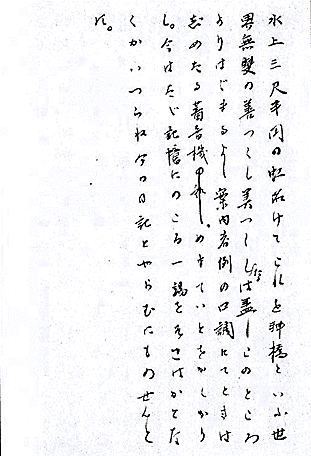 水上三尺半円の虹かけてこれを神橋といふ世
界無双の善つくし美つくしたるは蓋しこのところ
よりはじまるよし案内者例の口調にてときは
じめたる蓄音機めきていとをかしかり
し。今はたゞ記憶にのこる一端をそこはかとな
くかいつらね今日の日記とやらむにものせんと
す。